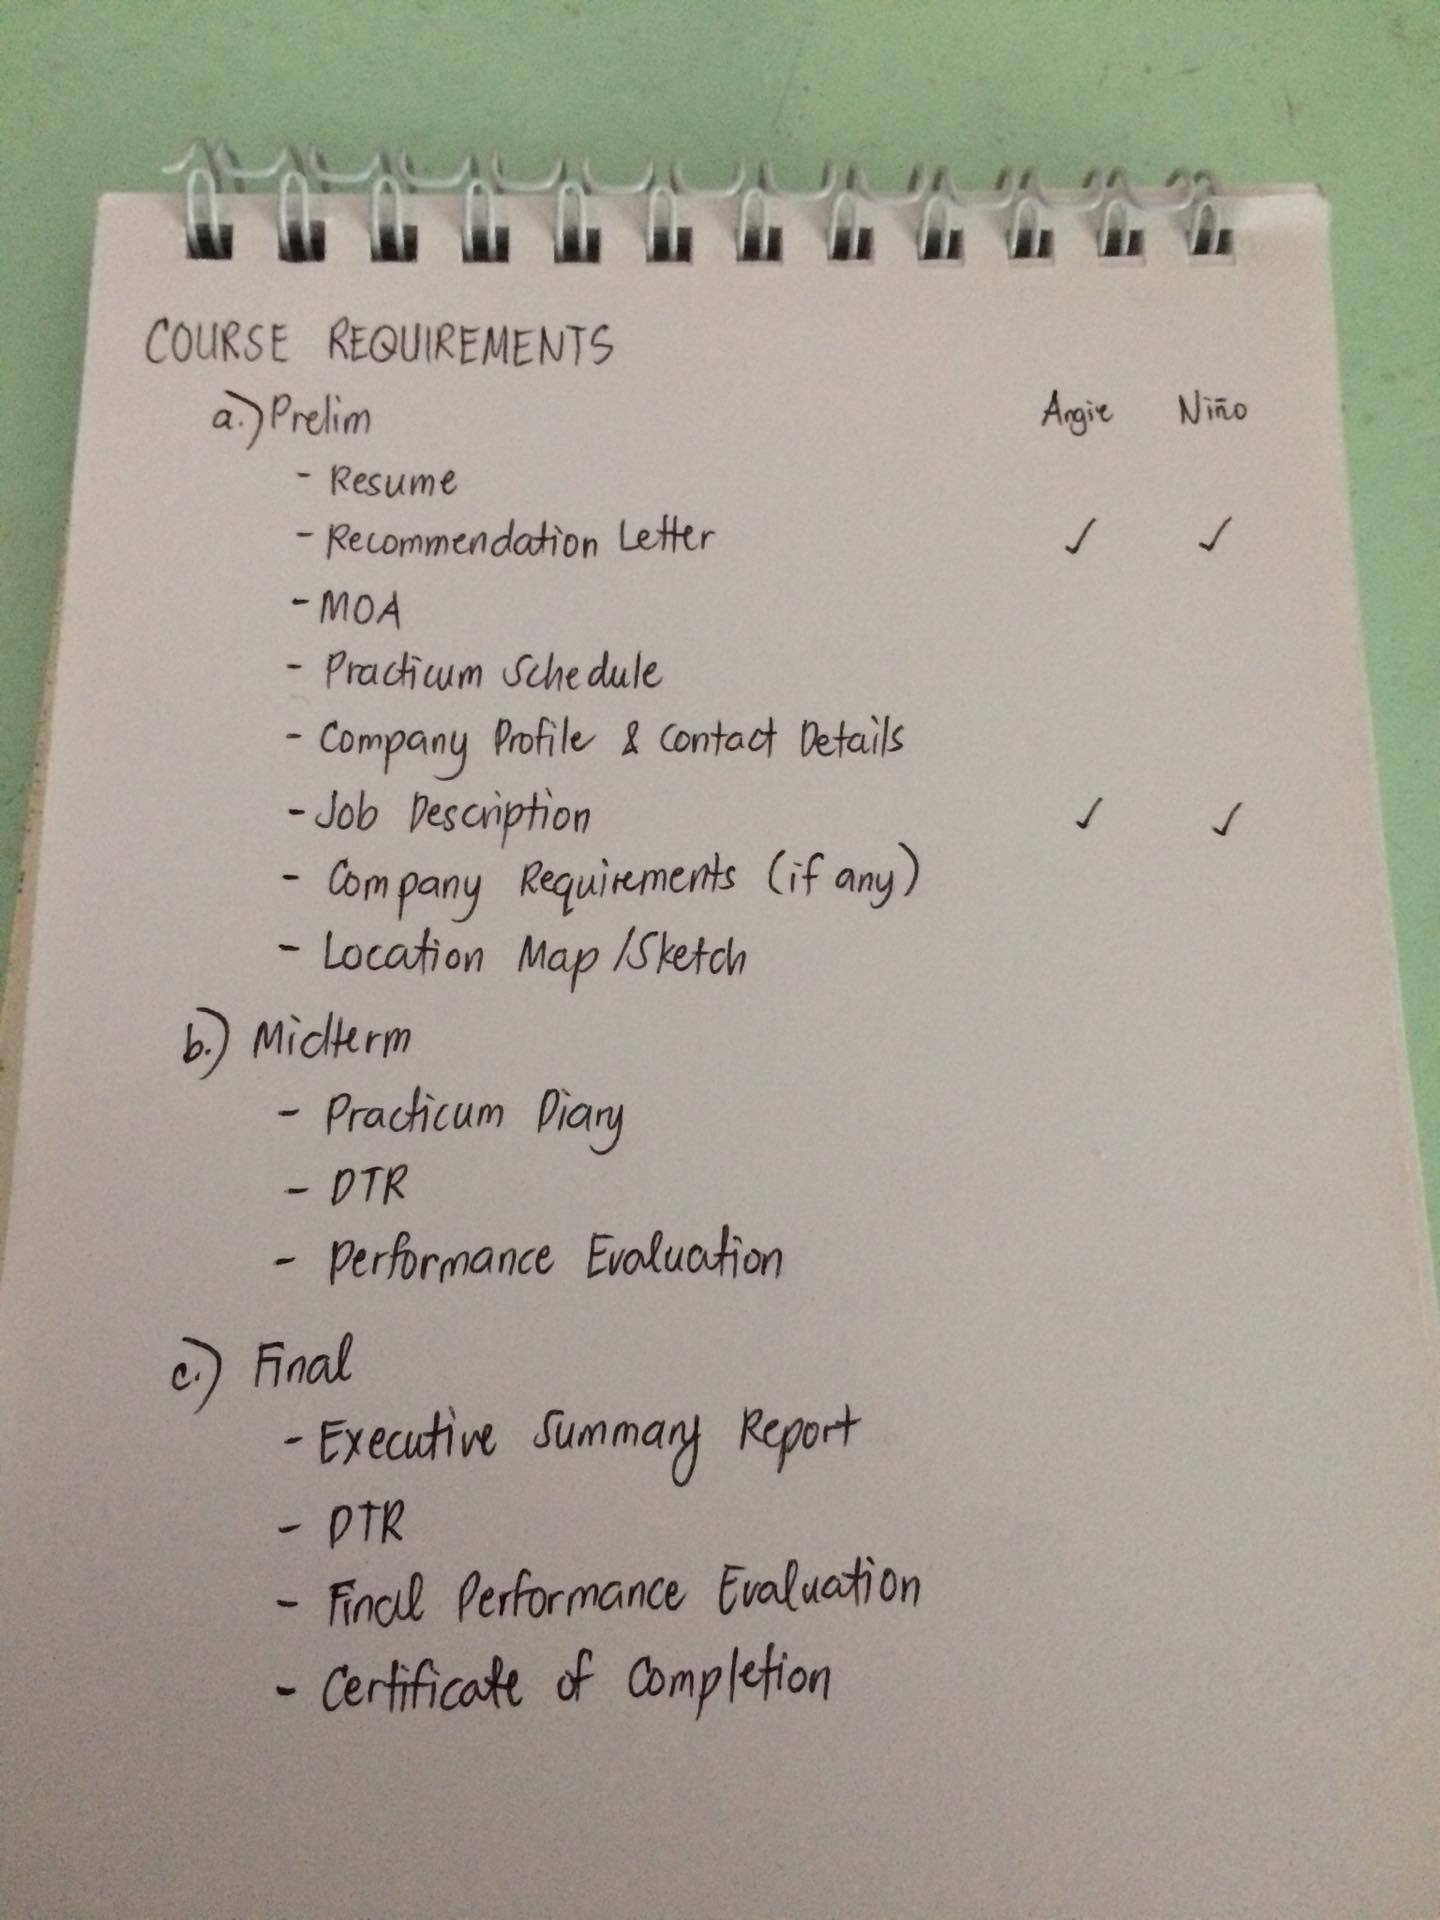 COURSE REQUIREMENTS
a.) Prelim Angie Niño
- Resume
- Recommendation Letter ✓ ✓
- MOA
- Practicum Schedule
- Company Profile & Contact Details
- Job Description ✓ ✓
- Company Requirements (if any)
- Location Map /Sketch
b.) Midterm
- Practicum Diary
- DTR
- Performance Evaluation
c.) Final
- Executive Summary Report
- DTR
- Final Performance Evaluation
- Certificate of Completion